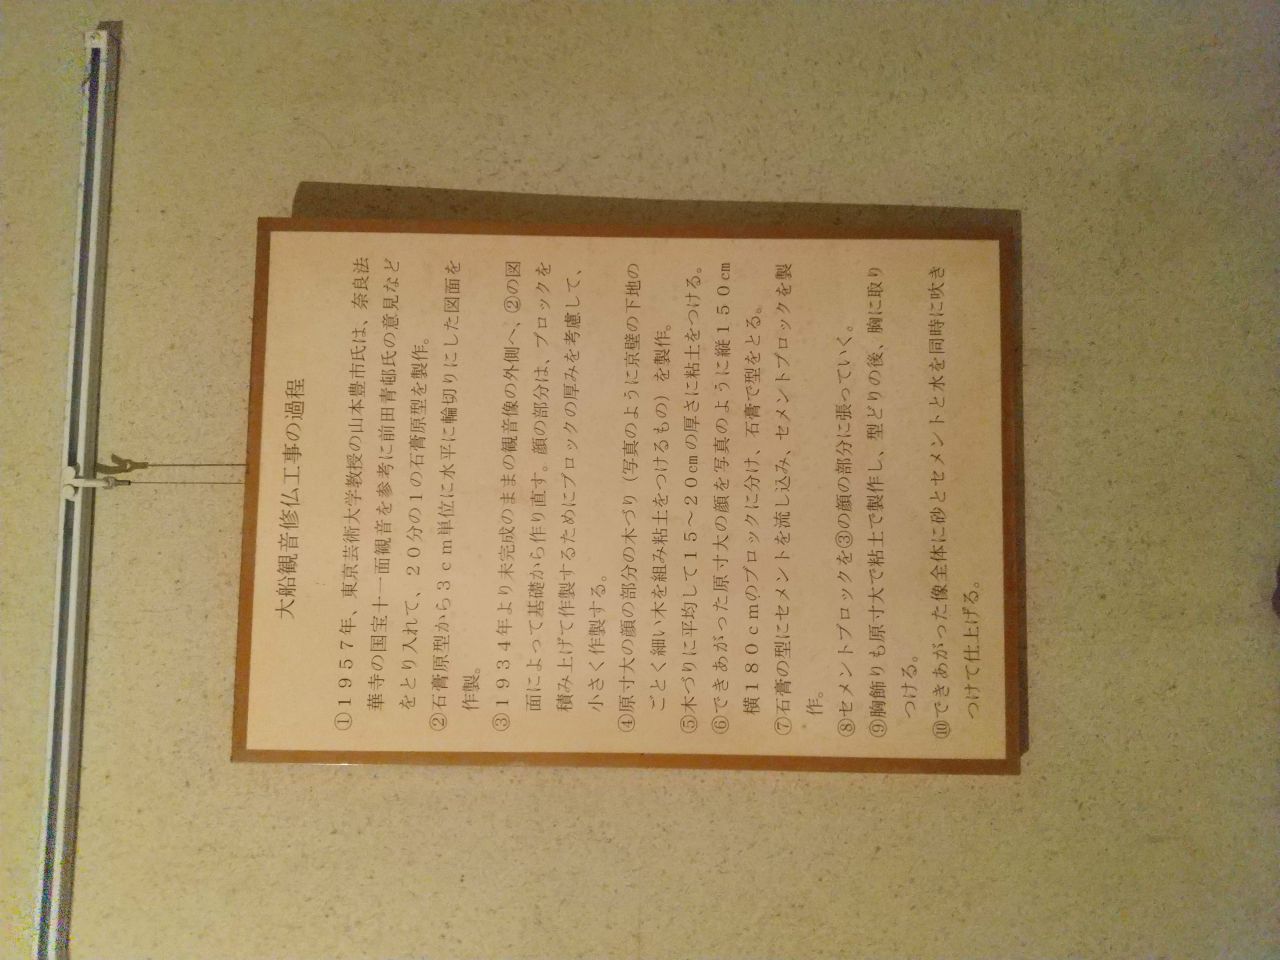 大船観音修仏工事の過程
①１９５７年、東京芸術大学教授の山本豊市氏は、奈良法
華寺の国宝十一面観音を参考に前田青邨氏の意見など
をとり入れて、２０分の１の石膏原型を製作。
②石膏原型から３ｃｍ単位に水平に輪切りにした図面を
作製。
③１９３４年より未完成のままの観音像の外側へ、②の図
面によって基礎から作り直す。顔の部分は、ブロックを
積み上げて作製するためにブロックの厚みを考慮して、
小さく作製する。
④原寸大の顔の部分の木づり（写真のように京壁の下地の
ごとく細い木を組み粘土をつけるもの）を製作。
⑤木づりに平均して１５～２０㎝の厚さに粘土をつける。
⑥できあがった原寸大の顔を写真のように縦１５０㎝
横１８０ｃｍのブロックに分け、石膏で型をとる。
⑦石膏の型にセメントを流し込み、セメントブロックを製
作。
⑧セメントブロックを③の顔の部分に張っていく。
⑨胸飾りも原寸大で粘土で製作し、型どりの後、胸に取り
つける。
⑩できあがった像全体に砂とセメントと水を同時に吹き
つけて仕上げる。